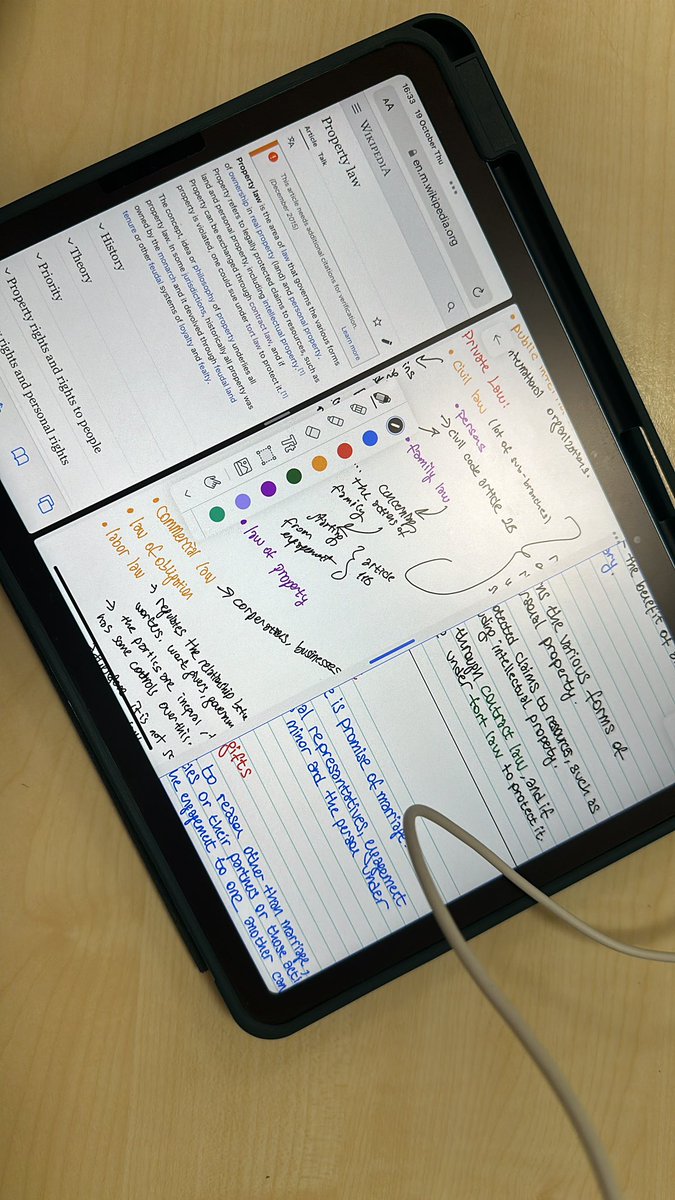 16:33 19 October Thu
AA
en.m.wikipedia.org
WIKIPEDIA
Property law
Article Talk
This article needs additional citations for verification.
(December 2015)
Learn more
Property law is the area of law that governs the various forms
of ownership in real property (land) and personal property.
Property refers to legally protected claims to resources, such as
land and personal property, including intellectual property.[1]
Property can be exchanged through contract law, and if
property is violated, one could sue under tort law to protect it.[1]
The concept, idea or philosophy of property underlies all
property law. In some jurisdictions, historically all property was
owned by the monarch and it devolved through feudal land
tenure or other feudal systems of loyalty and fealty.
History
Theory
Priority
Property rights and rights to people
rights and personal rights
• public
organizations.
Private Law:
• civil law (lot of sub-branches)
• persons
→ civil code article 28
• family law
concerning
the actions of
family
starting
from
engagement
article
118
• law of property
• commercial law → corporations, businesses
• law of obligation
• labor law
→ regulates the relationship
workers, want givers,
→ the parties are
has some controls over this.
it is not
the benefit of
ns the various forms of
property
otected claims to resources, such as
ing intellectual property.
through contract law, and if
under tort law to protect it.
e is promise of marriage.
al representatives, engagement
minor and the person under
gifts
to reason other than marriage,
or their partners or those
he engagement to one another can